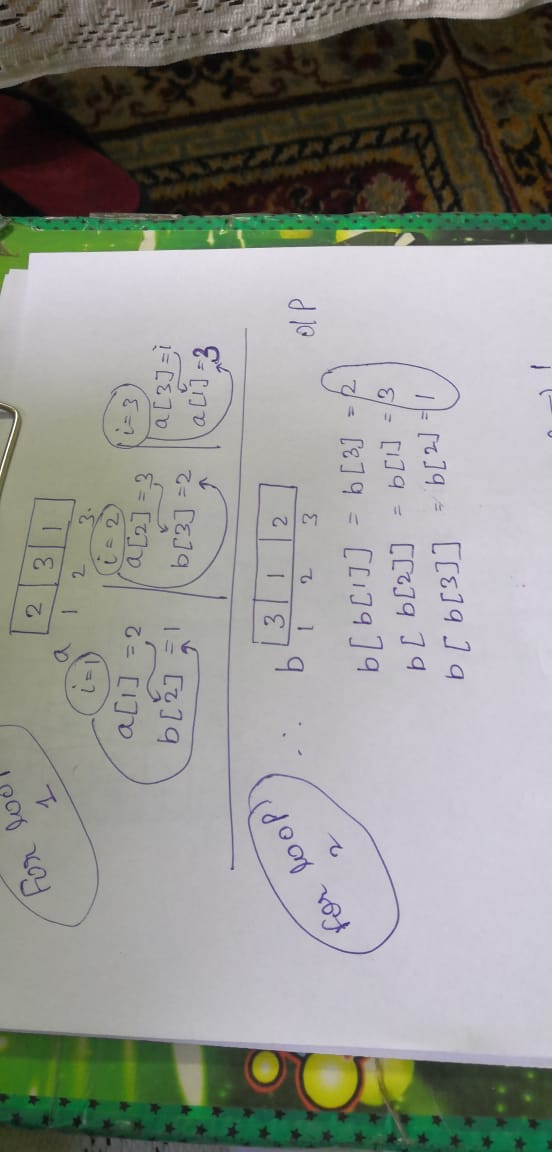 For loop
1
a 2 3 1
1 2 3.
i=1
a[1] = 2
b[2] = 1
i = 2
a[2] = 3
b[3] = 2
i=3
a[3]=i
a[1]=3
For loop
2
∴ b 3 1 2
1 2 3
o/P
b[ b[1]] = b[3] = 2
b[ b[2]] = b[1] = 3
b[ b[3]] = b[2] = 1